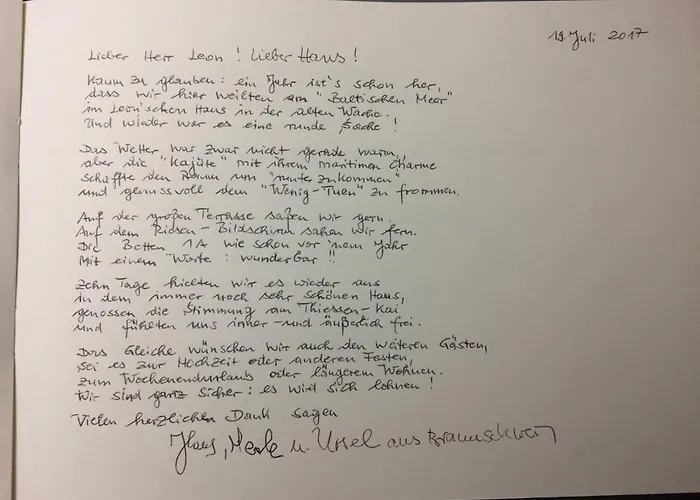 19. Juli 2017
Lieber Herr Leon! Lieber Hans!
Kaum zu glauben: ein Jahr ist's schon her,
dass wir hier weilten am "Baltischen Meer"
im Leon'schen Haus in der alten Wache.
Und wieder war es eine runde Sache!
Das Wetter war zwar nicht gerade warm,
aber die "Kajüte" mit ihrem maritimen Charme
schaffte den Raum um "runterzukommen"
und genussvoll dem "Wenig-Tuen" zu frommen.
Auf der großen Terrasse saßen wir gern.
Auf dem Riesen-Bildschirm sahen wir fern.
Die Betten 1A wie schon vor 'nem Jahr
Mit einem Worte: wunderbar!!
Zehn Tage hielten wir es wieder aus
in dem immer noch sehr schönen Haus,
genossen die Stimmung am Thiessen-Kai
und fühlten uns inner- und äußerlich frei.
Das Gleiche wünschen wir auch den weiteren Gästen,
sei es zur Hochzeit oder anderen Festen,
zum Wochenendurlaub oder längerem Wohnen.
Wir sind ganz sicher: es wird sich lohnen!
Vielen herzlichen Dank sagen
Hans, u. Ursel aus Braunschweig